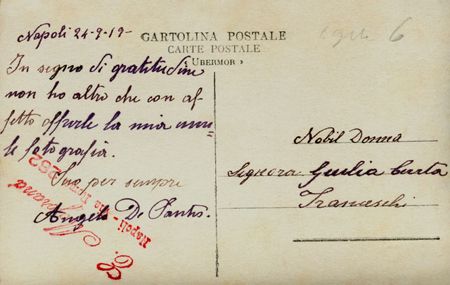 Napoli 24-9-19-
CARTOLINA POSTALE
CARTE POSTALE
« UBERMOR »
6
In segno di gratitudine
non ho altro che con af-
fetto offrirle la mia umi-
le fotografia.
Sua per sempre
Angela De Santis.
Nobil Donna
Signora Giulia
Franceschi
Napoli -
282